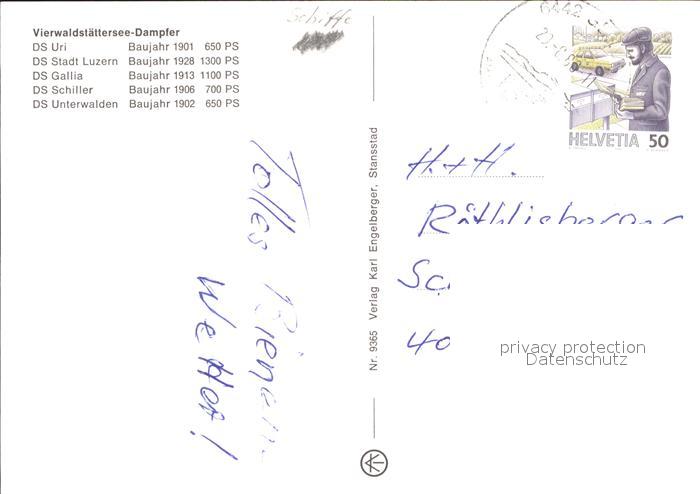 Vierwaldstättersee-Dampfer
DS Uri Baujahr 1901 650 PS
DS Stadt Luzern Baujahr 1928 1300 PS
DS Gallia Baujahr 1913 1100 PS
DS Schiller Baujahr 1906 700 PS
DS Unterwalden Baujahr 1902 650 PS
Schiffe
6442
HELVETIA 50
Tolles
Wetter!
Nr. 9365 Verlag Karl Engelberger, Stansstad
H.+H.
Röthlisberger
40
privacy protection
Datenschutz